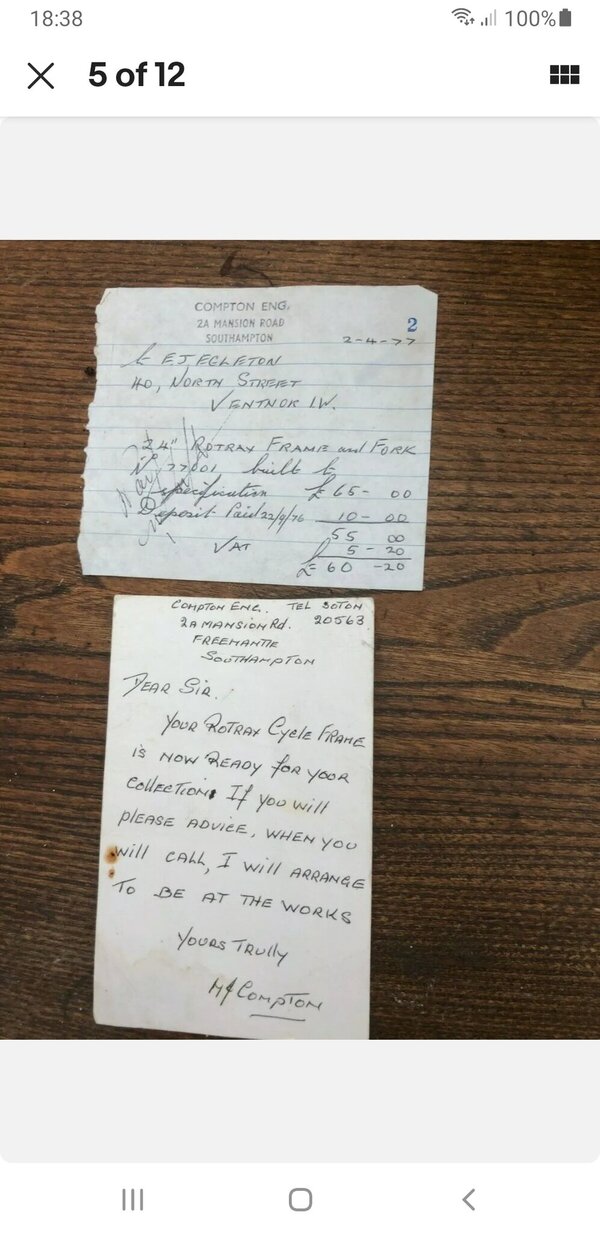 18:38
100%
5 of 12
COMPTON ENG.
2A MANSION ROAD
SOUTHAMPTON
2
2-4-77
to EJ EGLETON
40, NORTH STREET
VENTNOR I.W.
24" ROTRAX FRAME and FORK
No 77001 built to
specification £65- 00
Deposit Paid 22/9/76 10- 00
55 00
VAT 5 - 20
£ 60 - 20
COMPTON ENG. TEL SOTON
2A MANSION Rd. 20563
FREEMANTLE
SOUTHAMPTON
DEAR SIR.
YOUR ROTRAX CycLE FRAME
IS NOW READY FOR YOUR
COLLECTION. If you will
PLEASE ADVICE, WHEN YOU
will CALL, I will ARRANGE
TO BE AT THE WORKS
YOURS TRULLY
COMPTON